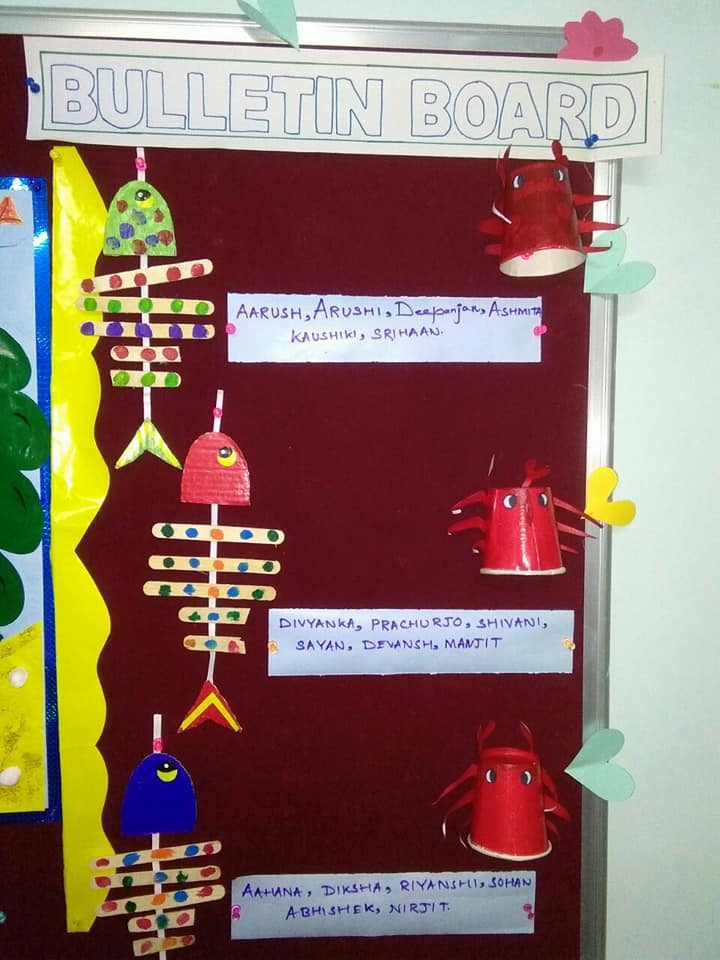 BULLETIN BOARD
AARUSH, ARUSHI, Deepanjan, ASHMITA
KAUSHIKI, SRIHAAN.
DIVYANKA, PRACHURJO, SHIVANI,
SAYAN, DEVANSH, MANJIT
AAHANA, DIKSHA, RIYANSHII, SOHAN
ABHISHEK, NIRJIT.